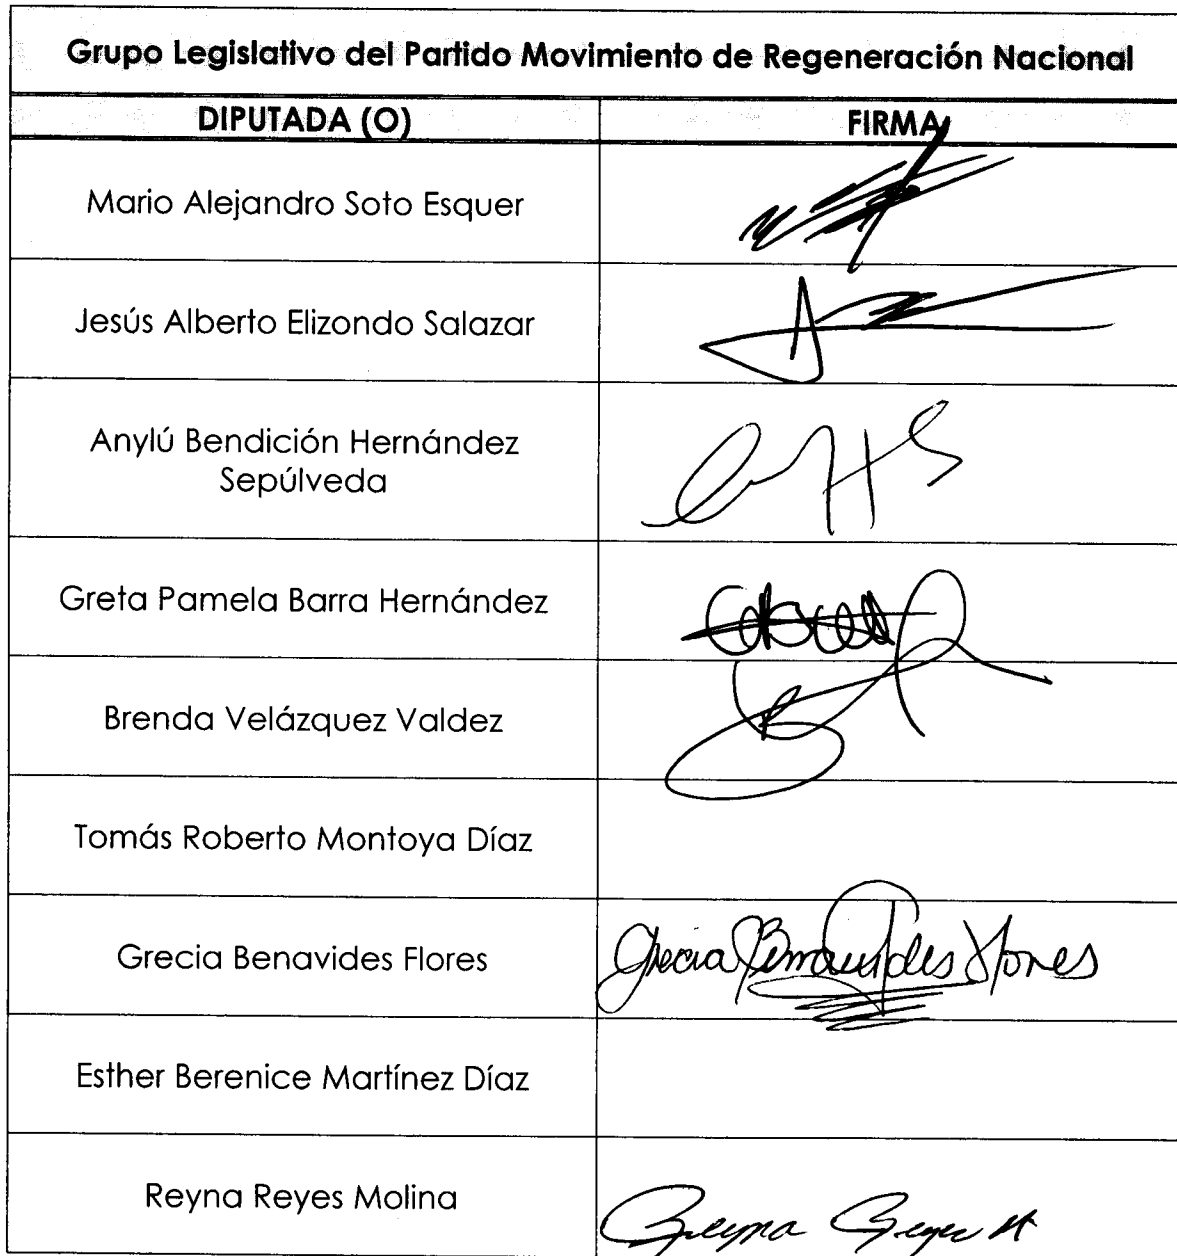 Grupo Legislativo del Partido Movimiento de Regeneración Nacional
DIPUTADA (O) FIRMA
Mario Alejandro Soto Esquer
Jesús Alberto Elizondo Salazar
Anylú Bendición Hernández
Sepúlveda
Greta Pamela Barra Hernández
Brenda Velázquez Valdez
Tomás Roberto Montoya Díaz
Grecia Benavides Flores Grecia Benavides Flores
Esther Berenice Martínez Díaz
Reyna Reyes Molina Reyna Reyes M